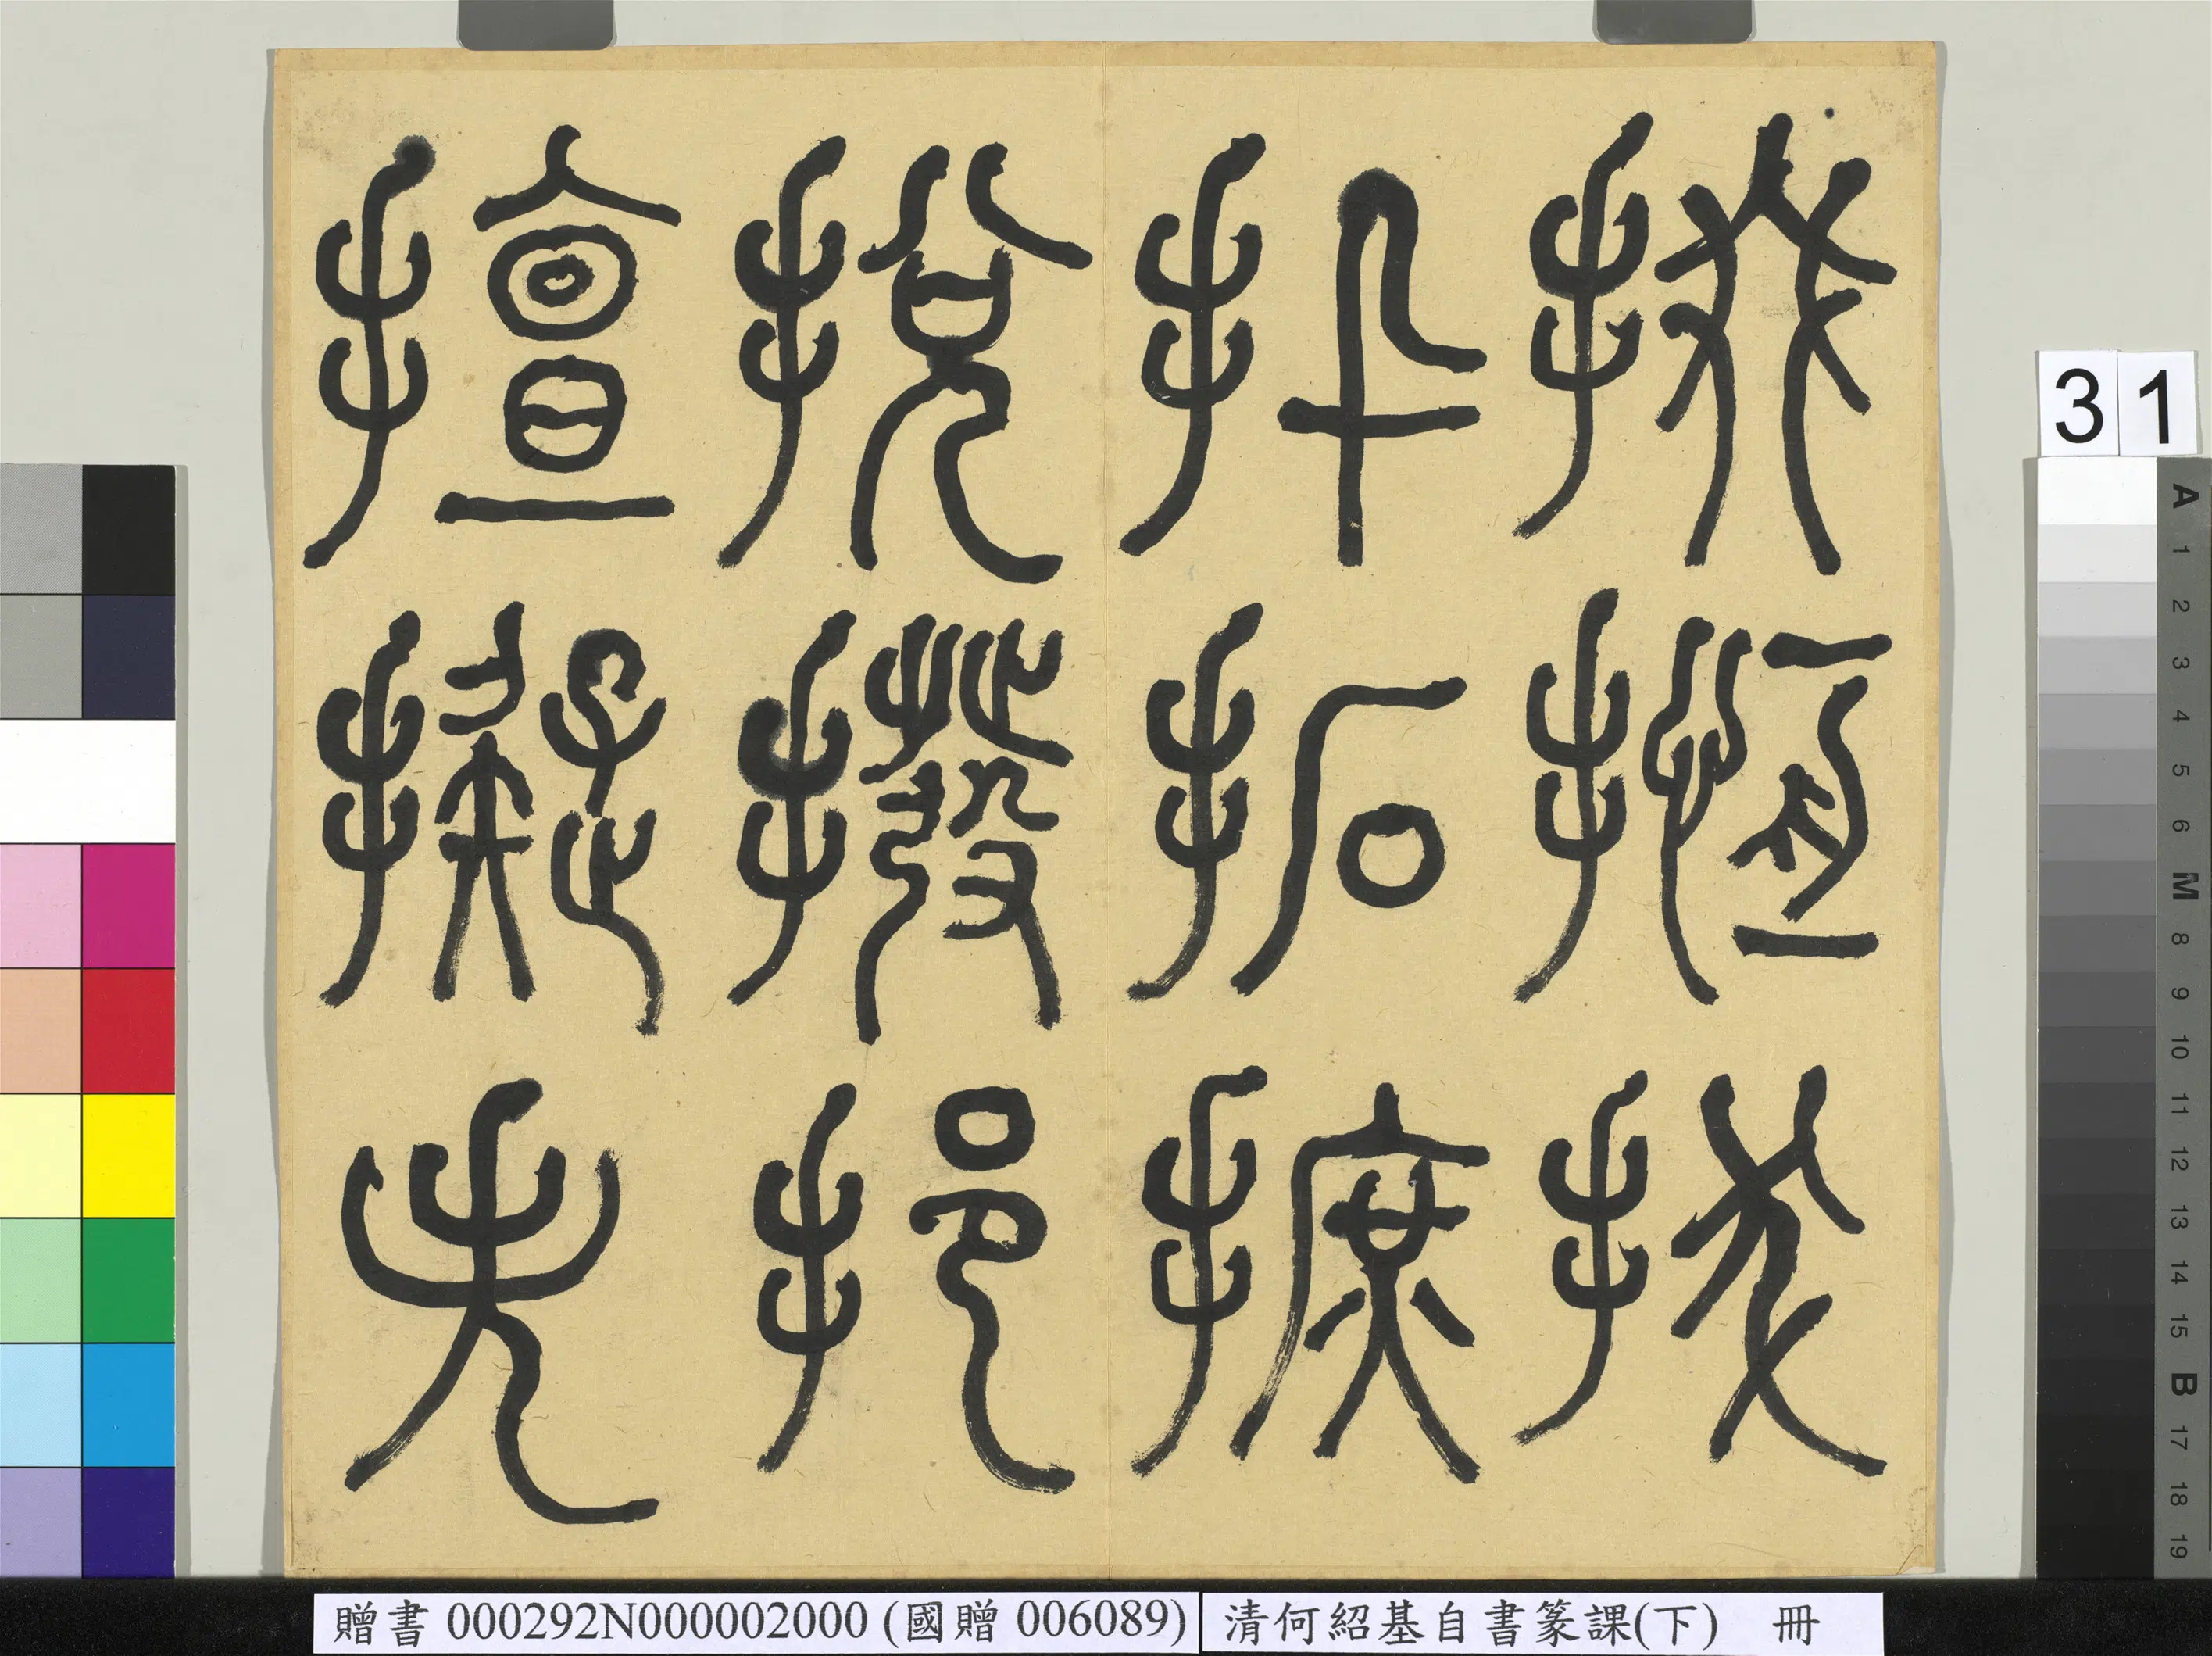 搄拔
扟拓摭
挩撥挹
擅擬失
31
A 1 2 3 4 5 6 M 8 9 10 11 12 13 14 15 B 17 18 19
贈書 000292N000002000 (國贈 006089)
清何紹基自書篆課(下) 冊